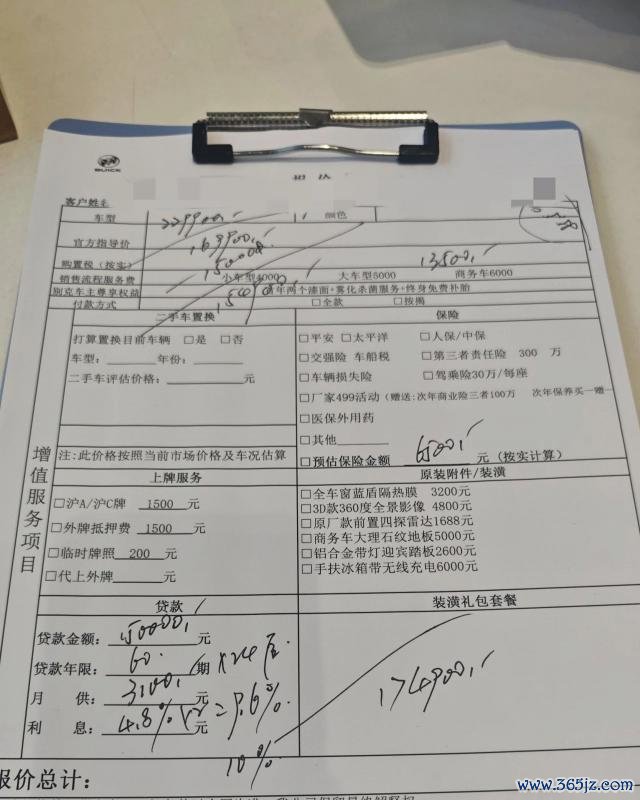 BUICK
客户姓名
车型 229900 颜色
官方指导价 169900
购置税（按实） 150000 13500
销售流程服务费 小车型4000 大车型5000 商务车6000
别克车主尊享权益 年两个漆面+雾化杀菌服务+终身免费补胎
付款方式 □全款 □按揭
二手车置换 保险
打算置换目前车辆 □是 □否 □平安 □太平洋 □人保/中保
车型：______年份：______ □交强险 车船税 □第三者责任险 300 万
二手车评估价格：______元 □车辆损失险 □驾乘险30万/每座
□厂家499活动（赠送:次年商业险三者100万 次年保养买一赠一
□医保外用药
□其他______
注:此价格按照当前市场价格及车况估算 □预估保险金额 6500 元（按实计算）
增值服务项目
上牌服务 原装附件/装潢
□沪A/沪C牌 1500 元 □全车窗蓝盾隔热膜 3200元
□外牌抵押费 1500 元 □3D款360度全景影像 4800元
□临时牌照 200 元 □原厂款前置四探雷达1688元
□代上外牌______元 □商务车大理石纹地板5000元
□铝合金带灯迎宾踏板2600元
□手扶冰箱带无线充电6000元
贷款 装潢礼包套餐
贷款金额：150000元
贷款年限：60 期 ×24
月 供：3100 元 174900
利 息：4.8% ×2元 = 9.6%
10%
报价总计：
www.365jz.com